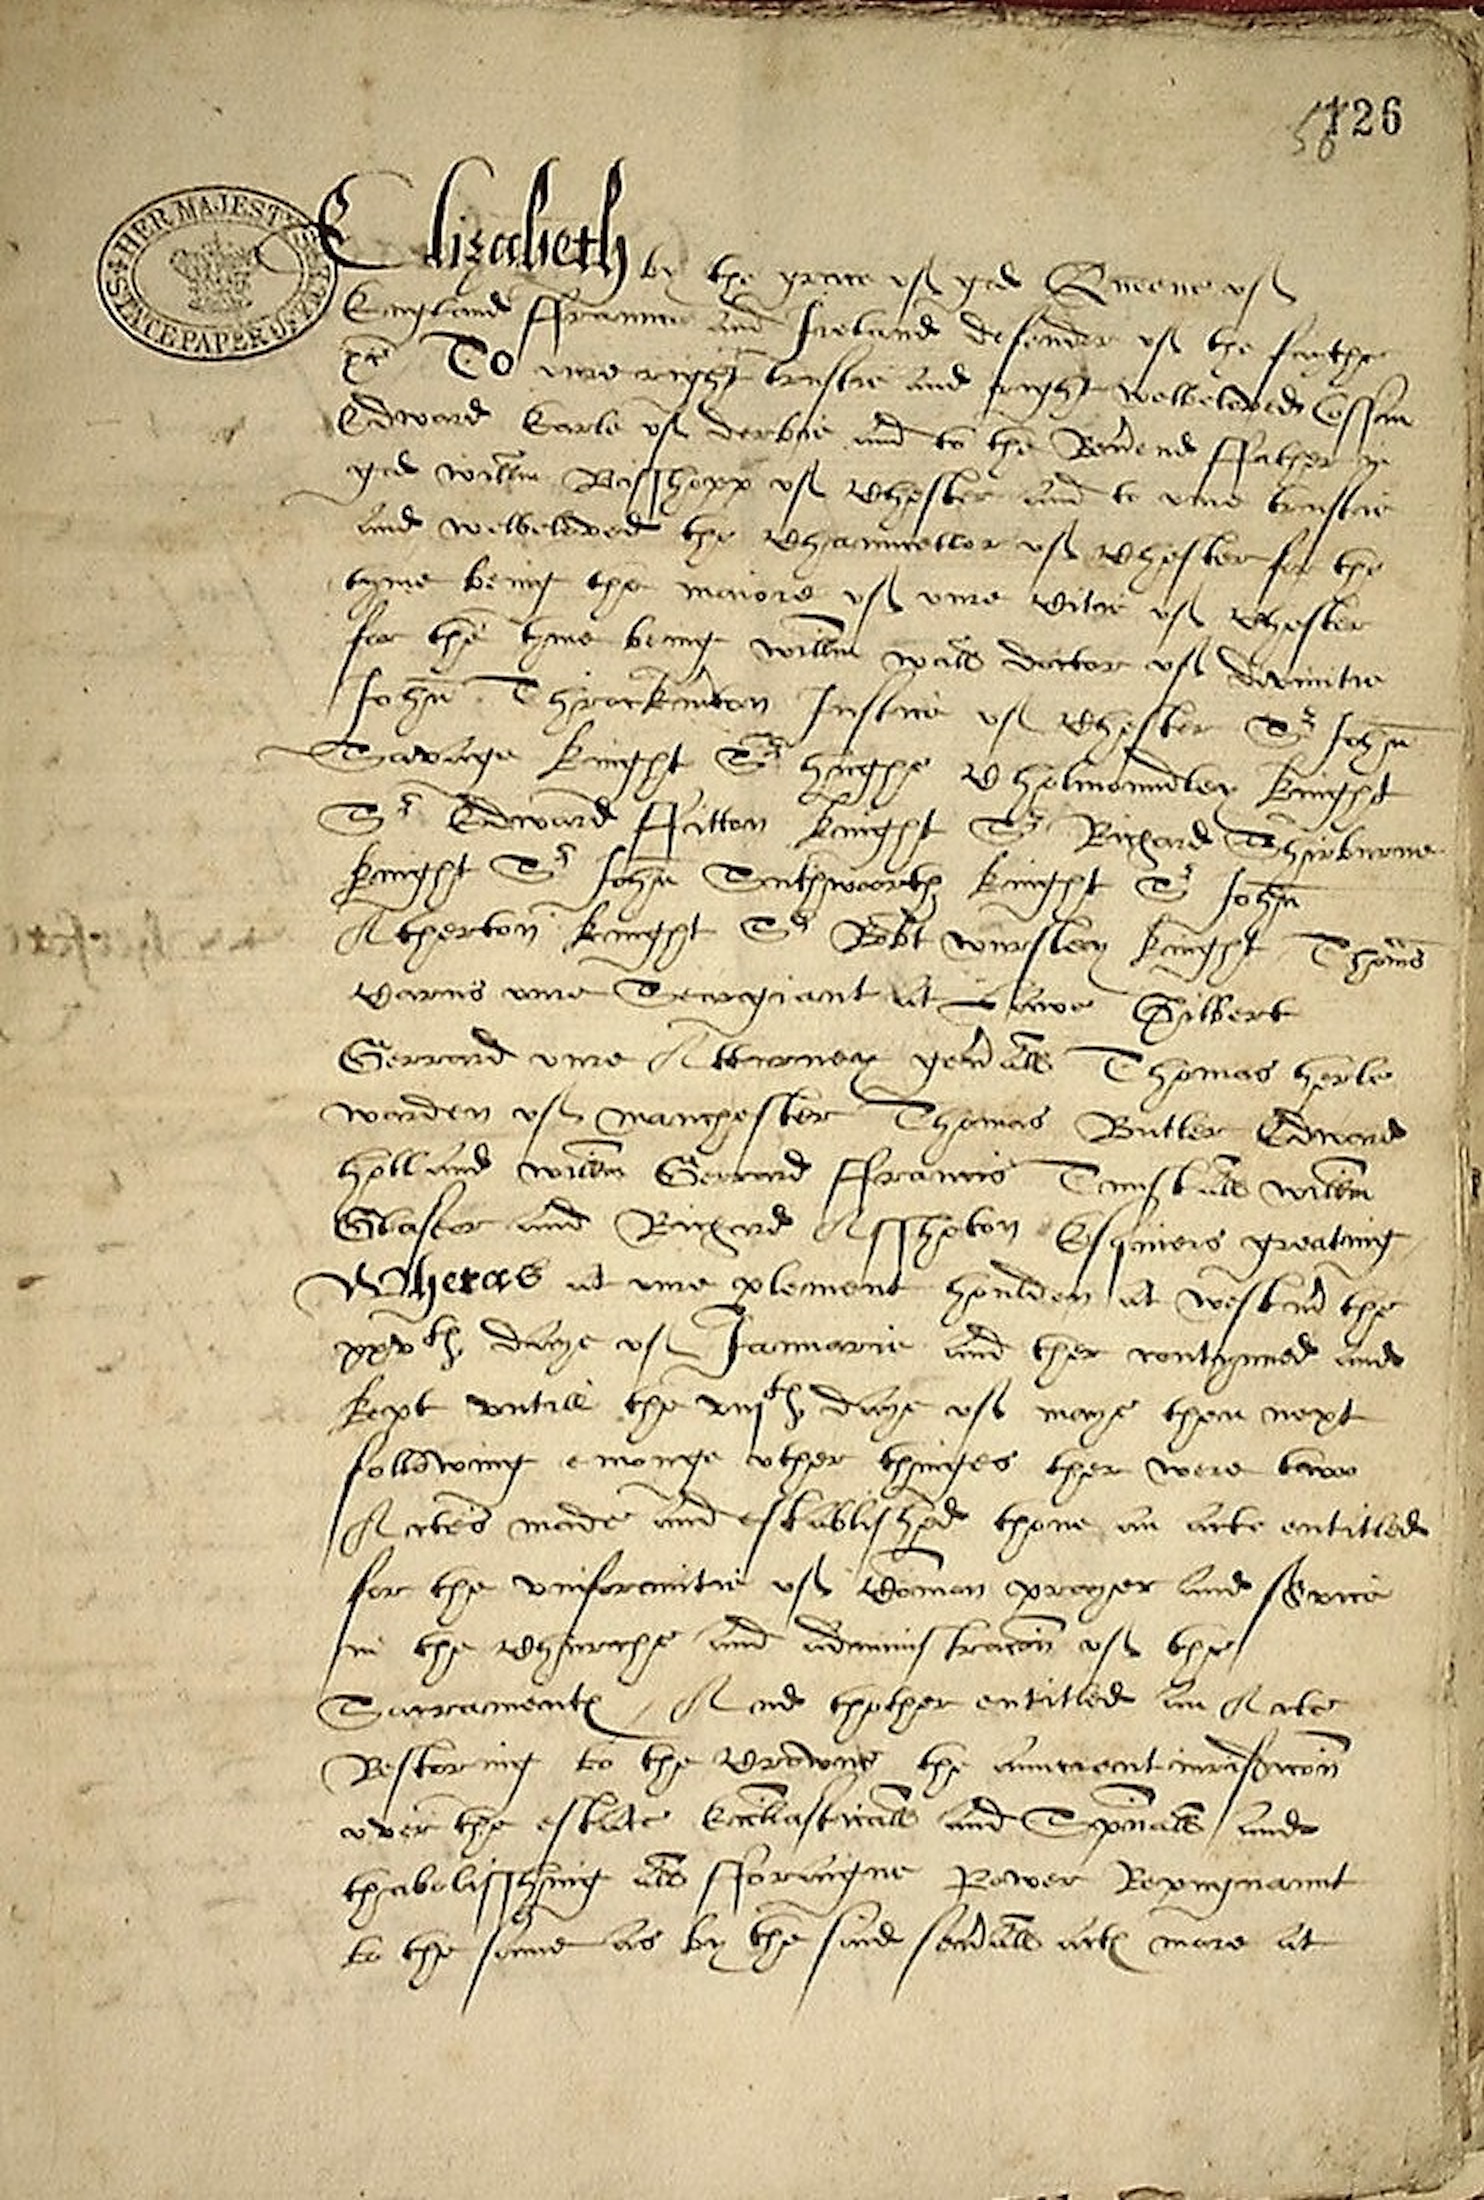 126
58
HER MAJESTY'S STATE PAPER OFFICE
Elizabeth by the grace off god Queene off
England ffraunce and Ireland defender off the faythe
xc To oure right trustie and right welbeloved Cossin
Edward Earle off derbie and to the Rev'end ffather in
god willm Bisshopp off Chester and to oure trustie
and welbeloved the Chauncellor off Chester for the
tyme being the maiore off oure Citie off Chester
for the tyme being willm wall doctor off divinitie
John Throckm'ton Justice off Chester Sr John
Savage knight Sr hughe Cholmoundley knight
Sr Edward ffitton knight Sr Richard Shirburne
knight Sr John Suthwoorth knight Sr John
Atherton knight Sr Robt wursley knight Thoms
Carus oure Seargiant at Lawe Gilbert
Gerrard oure Atturney gen'all Thomas herle
warden off manchester Thomas Butler Edward
holland willm Gerrard ffrancis Tunstall willm
Glaseor and Richard Assheton Esquiers greating
Wheras at oure plement houlden at westm' the
xxvth daye off Januarie and ther contynued and
kept untill the viijth daye off maye then next
following emonge other thinges ther were twoo
Actes made and established thone an acte entitled
for the uniformitie off Comon prayer and service
in the Churche and administracon off the
Sacramentes / And thother entitled an Acte
Restoring to the Crowne the auncient iurisdiccon
over the estate Ecclasticall and Sp'uall and
thabolisshing all fforaigne Power Repugnaunt
to the same as by the said sev'all actes more at